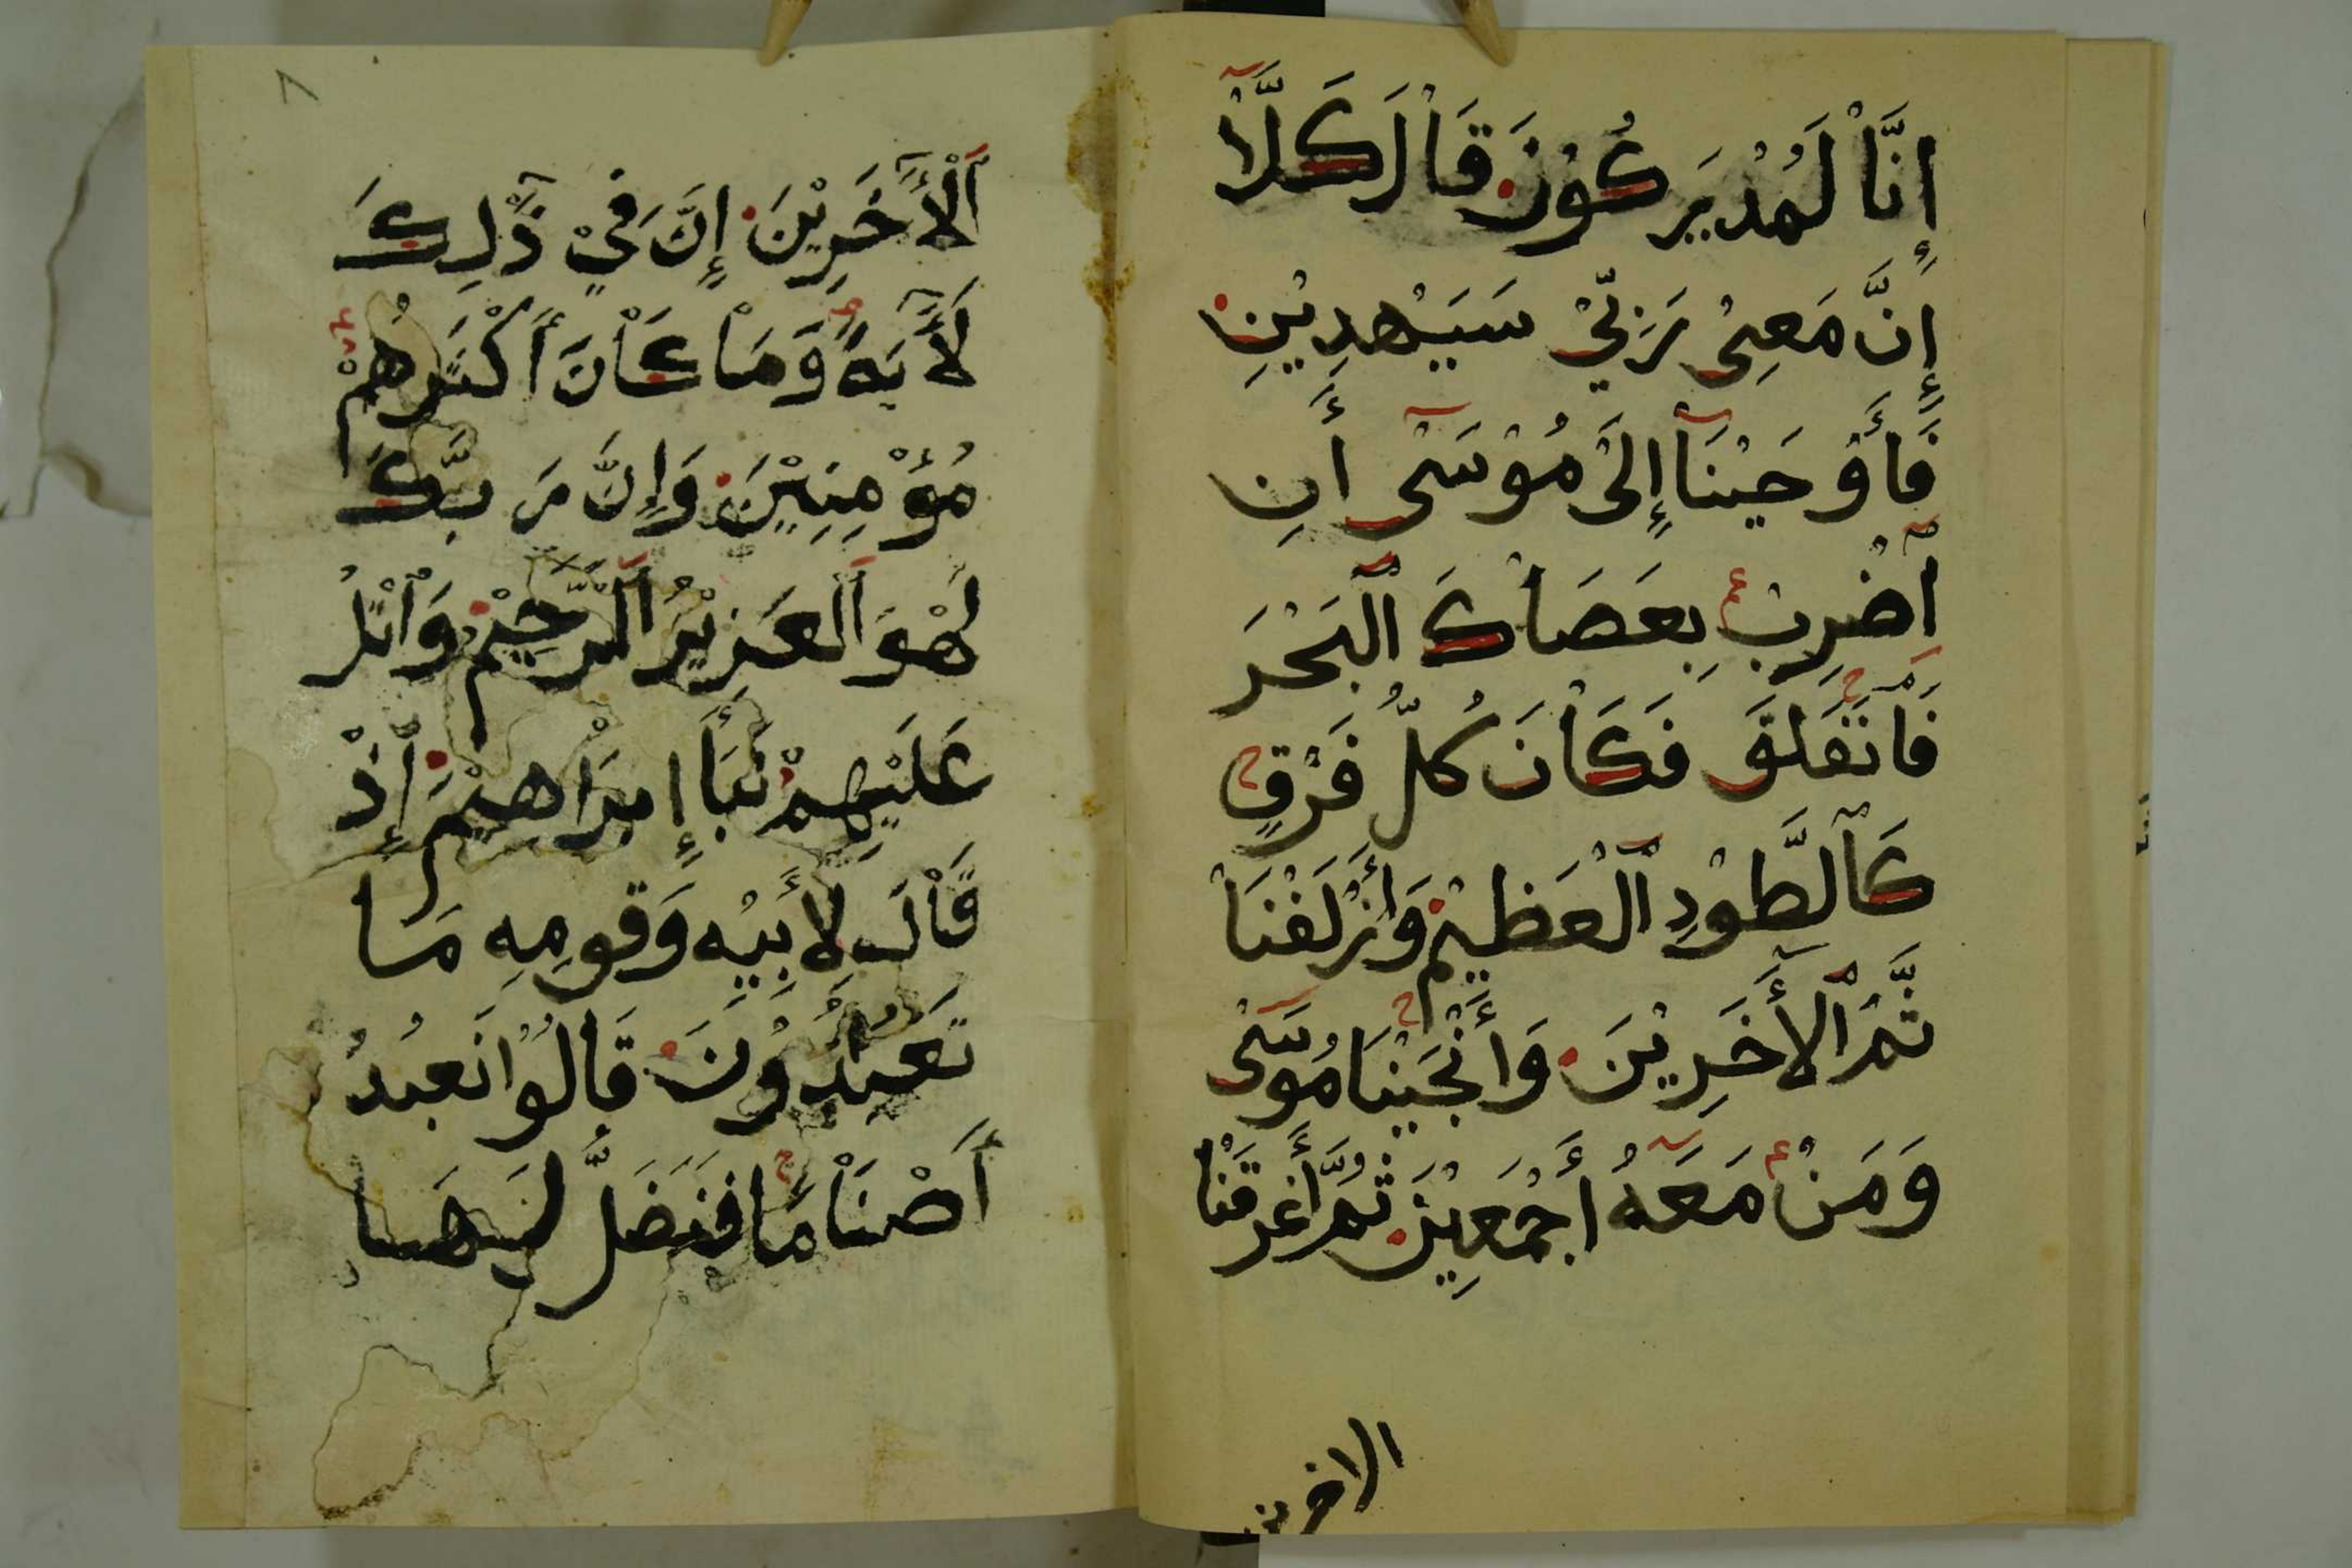 إِنَّاْ لَمُدْيَركُوْنَ قَاْلَ كَلَّاْ
إِنَّ مَعِىْ رَبِّيْ سَيَهْدِيْنِ
فَأَوْحَيْنَآ إِلَىْ مُوْسَىْ أَنِ
اْضْرِبْ بِعَصَاْكَ الْبَحْرَ
فَاْنَفَلَقَ فَكَاْنَ كُلُّ فَرْقٍ
كَاْلطَّوْدِ اْلْعَظِيْمِ وَأَزْلَفْنَاْ
ثَّمَّ اْلأَخَرِيْنَ وَأَنْجَيْنَا مُوسَىْ
وَمَنْ مَعَهُ أَجْمَعِيْنَ ثُمَّ أَغْرَقْنَاْ
الاخرين
٨
اَلْأَخَرِيْنَ إِنَّ فِيْ ذَٰلِكَ
لَأَيَةً وَمَاْ كَاْنَ أَكْثَرُهُمْ
مُؤْمِنِيْنَ وَإِنَّ رَبَّكَ
لَهْوَ اَلعَزِيْزُ اَلرَّحِيْمِ وَاْتْلُ
عَلَيْهِمْ نَبَأَ إِبْرَاْهِيْمَ إِذْ
قَاْلَ لِأَبِيْهِ وَقومِهِ مَا
تَعْبُدُوْنَ قَالُوْا نَعبُدُ
أَصْنَاْمًا فَنَضَلُّ لَهَا